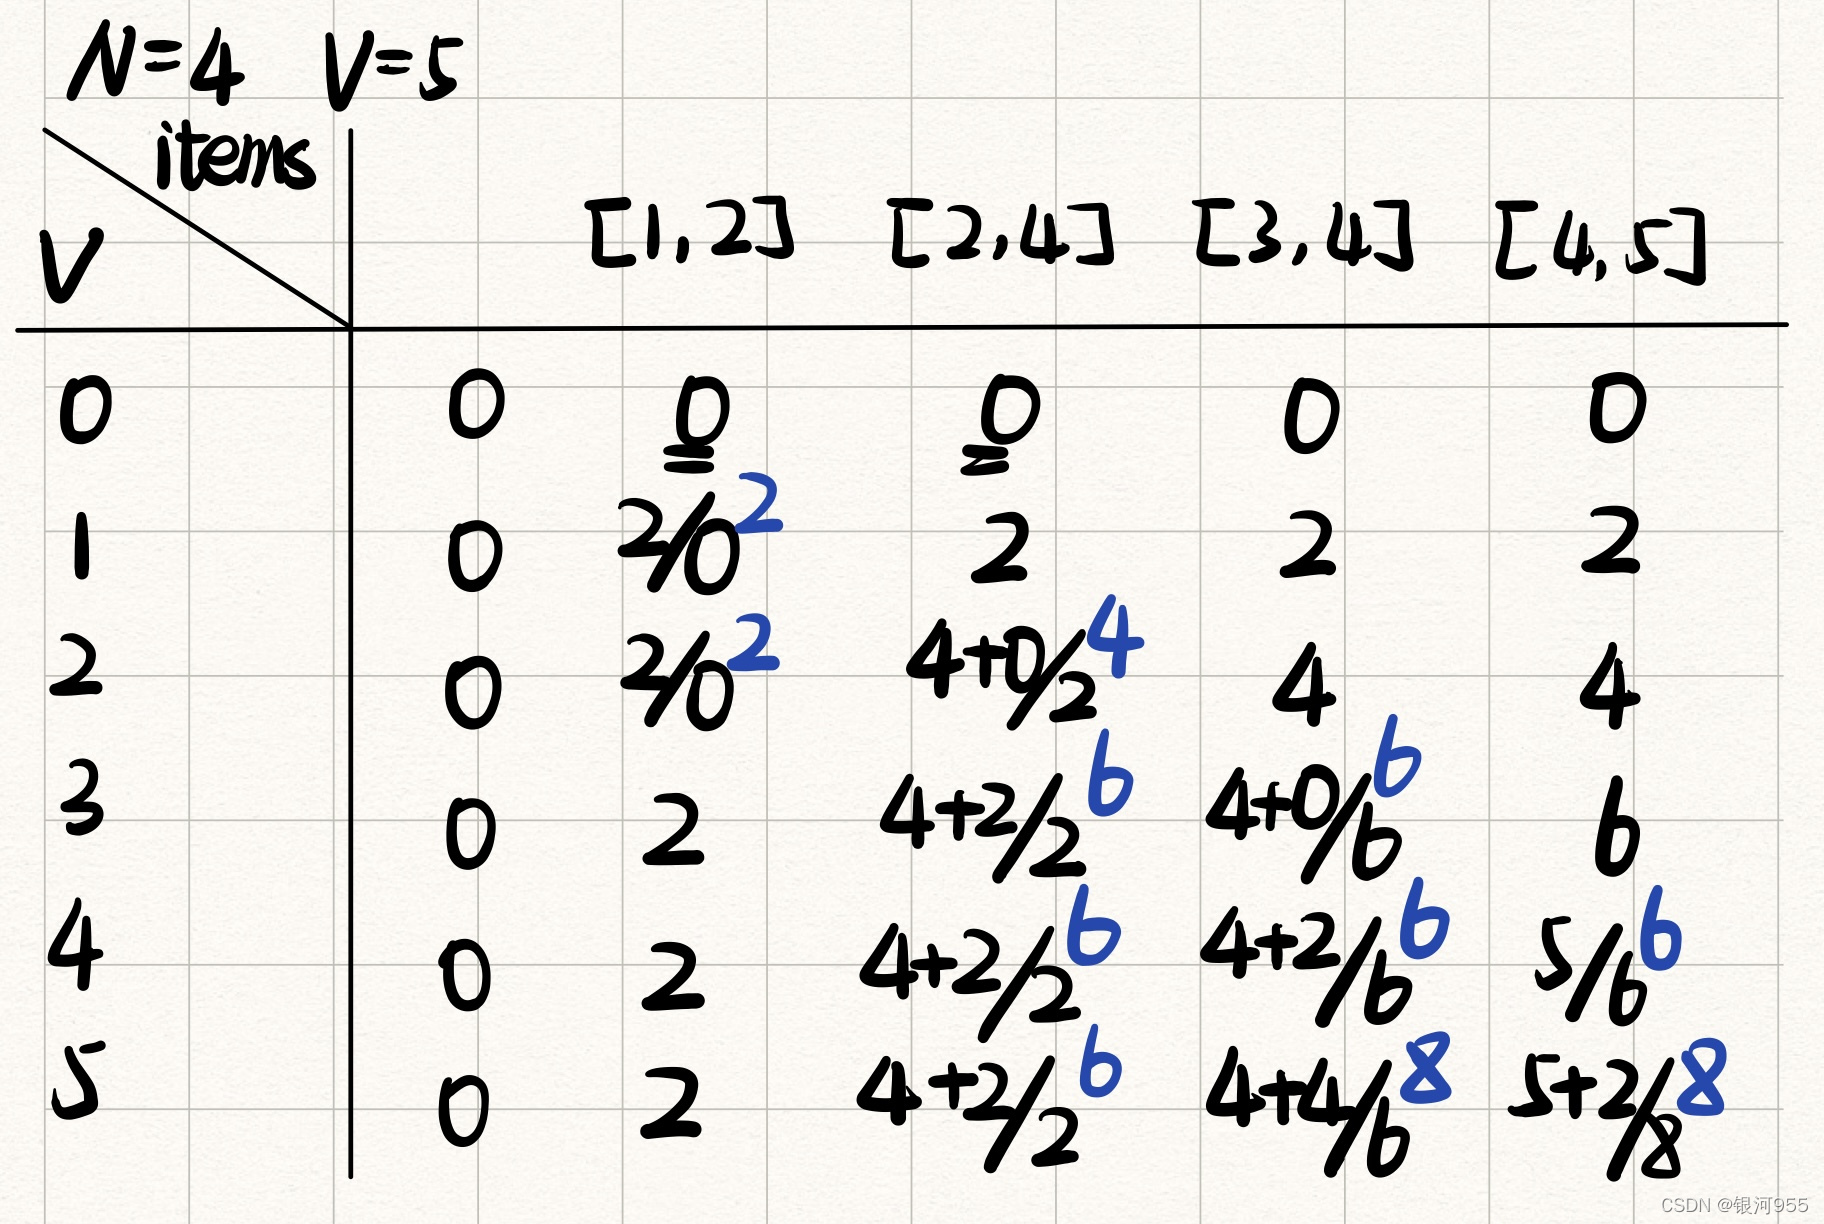 N=4 V=5
items
V
[1,2] [2,4] [3,4] [4,5]
0 0 0 0 0 0
1 0 2/0 2 2 2 2
2 0 2/0 2 4+0/2 4 4 4
3 0 2 4+2/2 6 4+0/6 6 6
4 0 2 4+2/2 6 4+2/6 6 5/6 6
5 0 2 4+2/2 6 4+4/6 8 5+2/8 8
CSDN @银河955